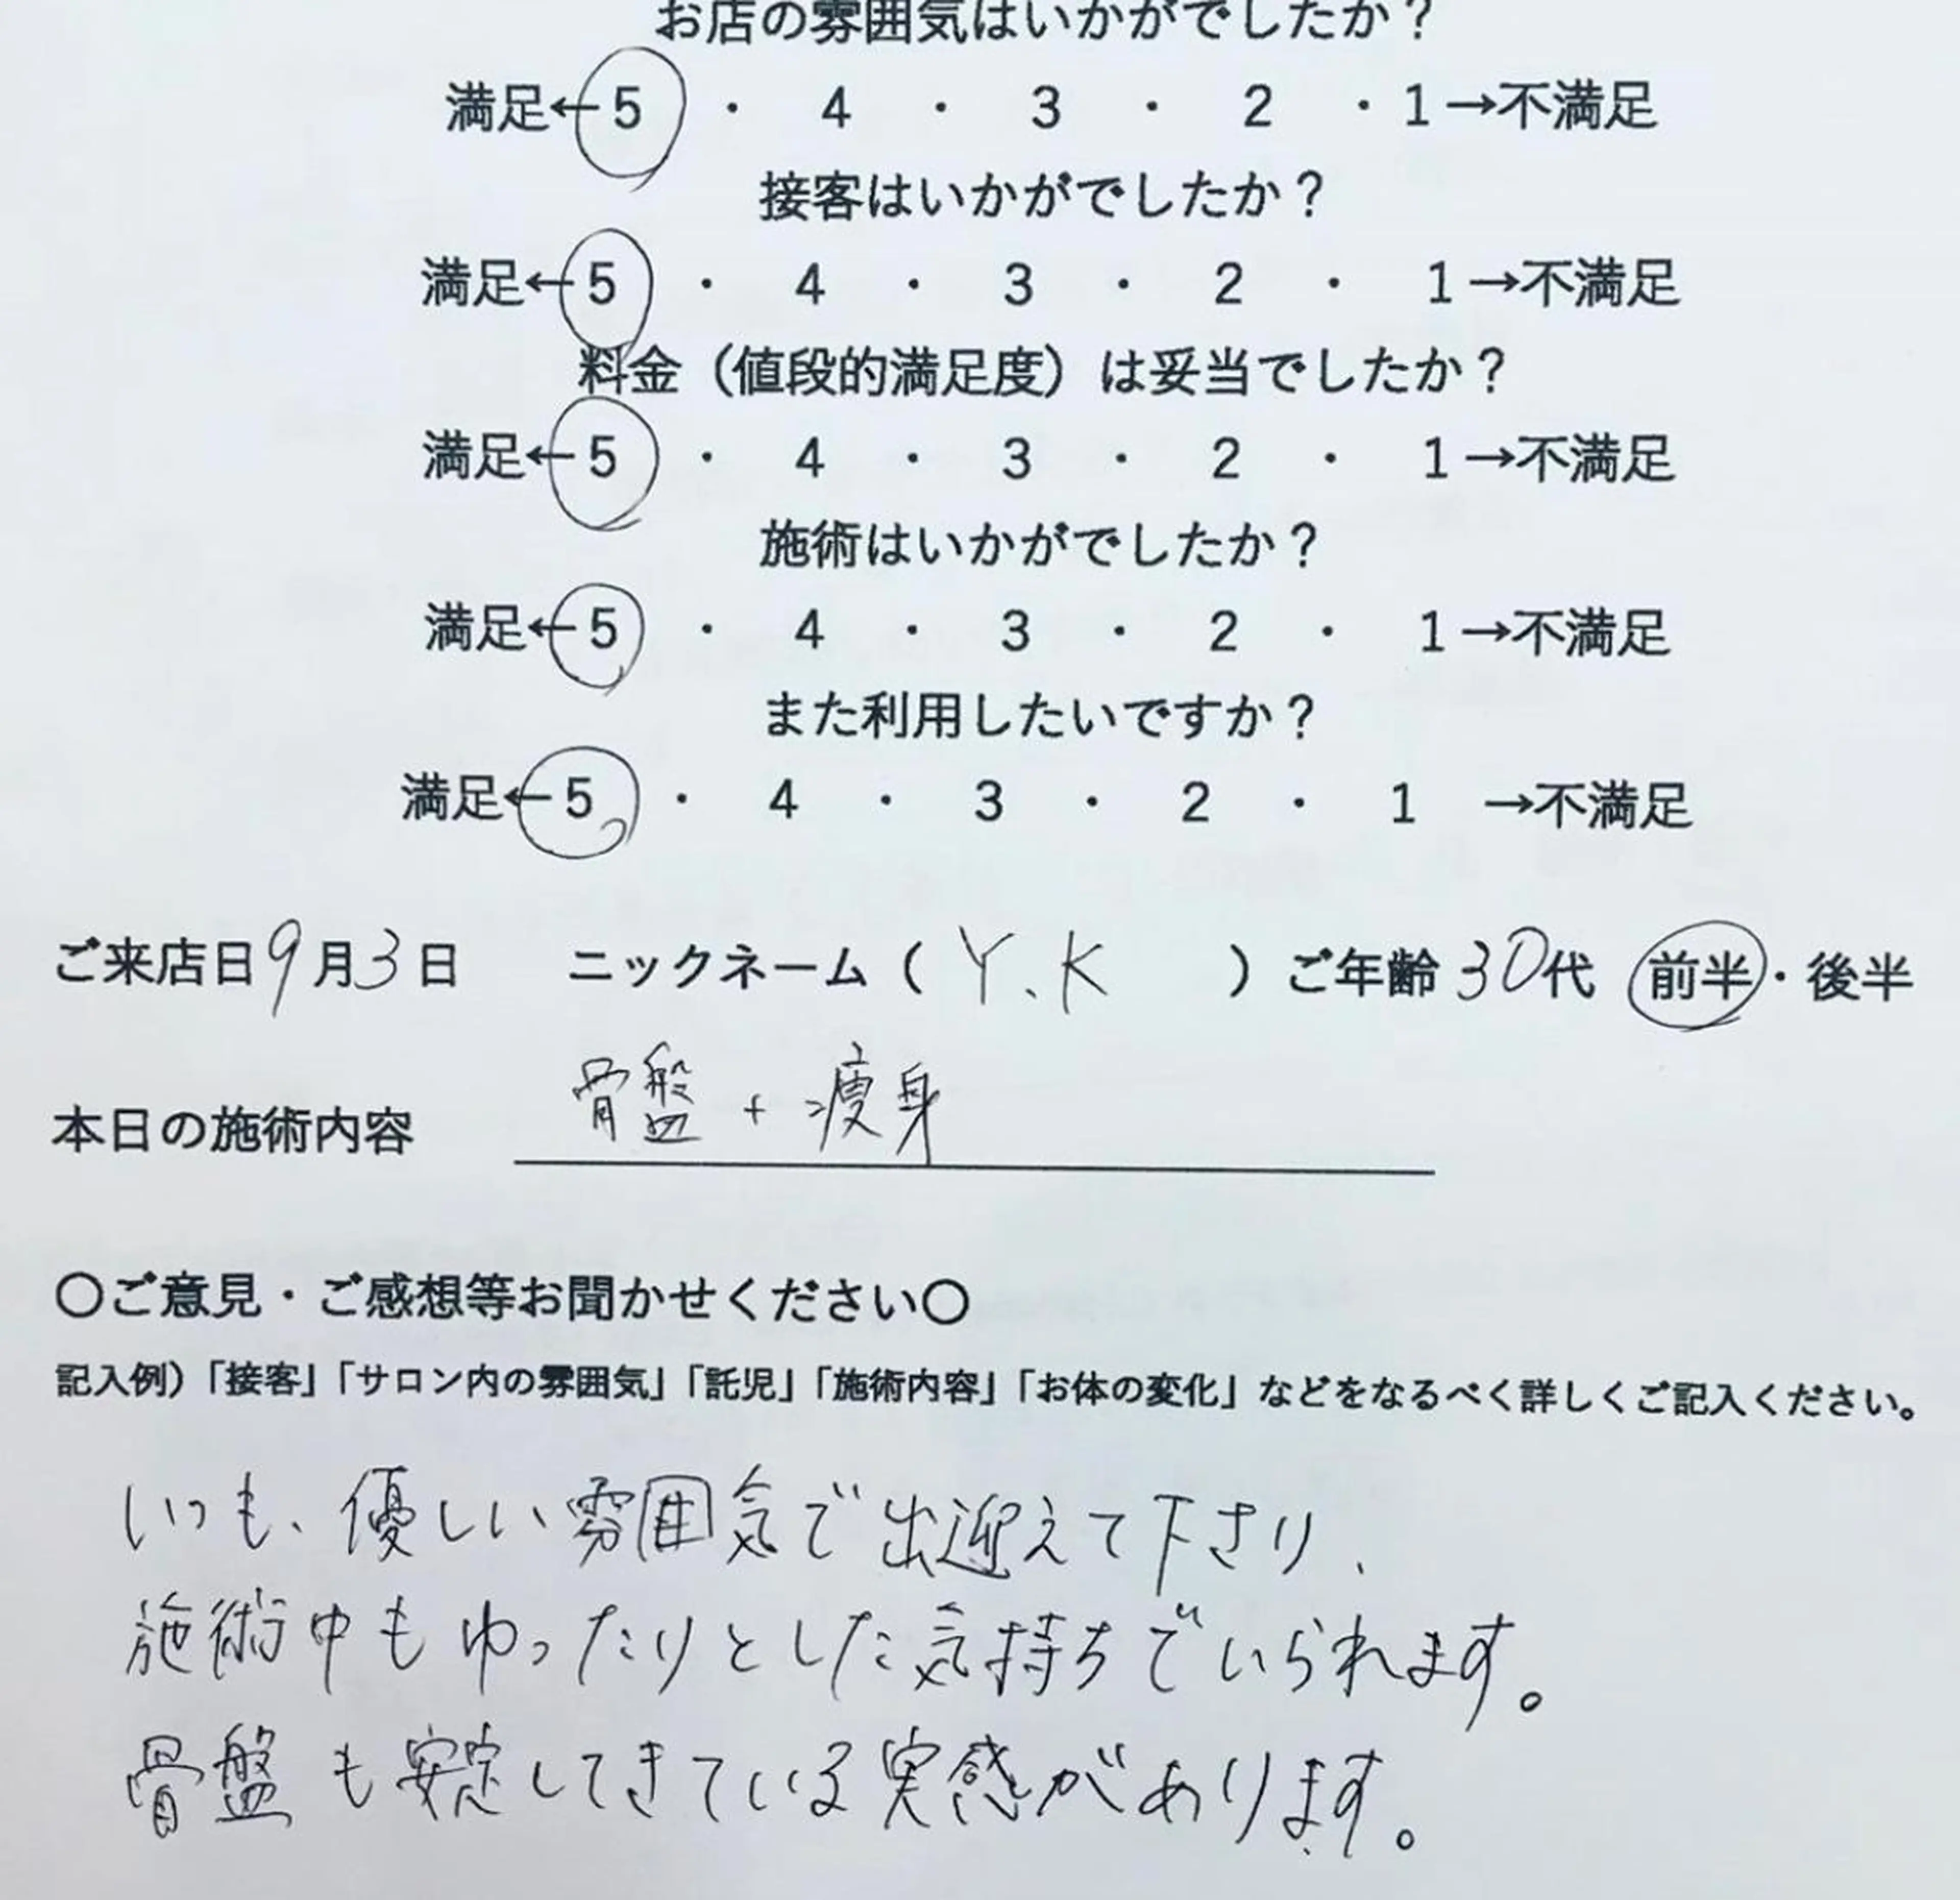 お店の雰囲気はいかがでしたか？
満足←5 ・ 4 ・ 3 ・ 2 ・ 1→不満足
接客はいかがでしたか？
満足←5 ・ 4 ・ 3 ・ 2 ・ 1→不満足
料金（値段的満足度）は妥当でしたか？
満足←5 ・ 4 ・ 3 ・ 2 ・ 1→不満足
施術はいかがでしたか？
満足←5 ・ 4 ・ 3 ・ 2 ・ 1→不満足
また利用したいですか？
満足←5 ・ 4 ・ 3 ・ 2 ・ 1 →不満足
ご来店日9月3日 ニックネーム（ Y.K ）ご年齢30代 前半・後半
本日の施術内容 骨盤＋痩身
〇ご意見・ご感想等お聞かせください〇
記入例）「接客」「サロン内の雰囲気」「託児」「施術内容」「お体の変化」などをなるべく詳しくご記入ください。
いつも、優しい雰囲気で出迎えて下さり、
施術中もゆったりとした気持ちでいられます。
骨盤も安定してきている実感があります。